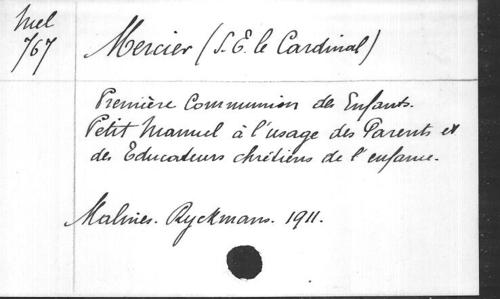 Mel
767
Mercier (S. E. le Cardinal)
Première Communion des Enfants.
Petit Manuel à l'usage des Parents et
des Educateurs chrétiens de l'enfance.
Malines. Ryckmans. 1911.